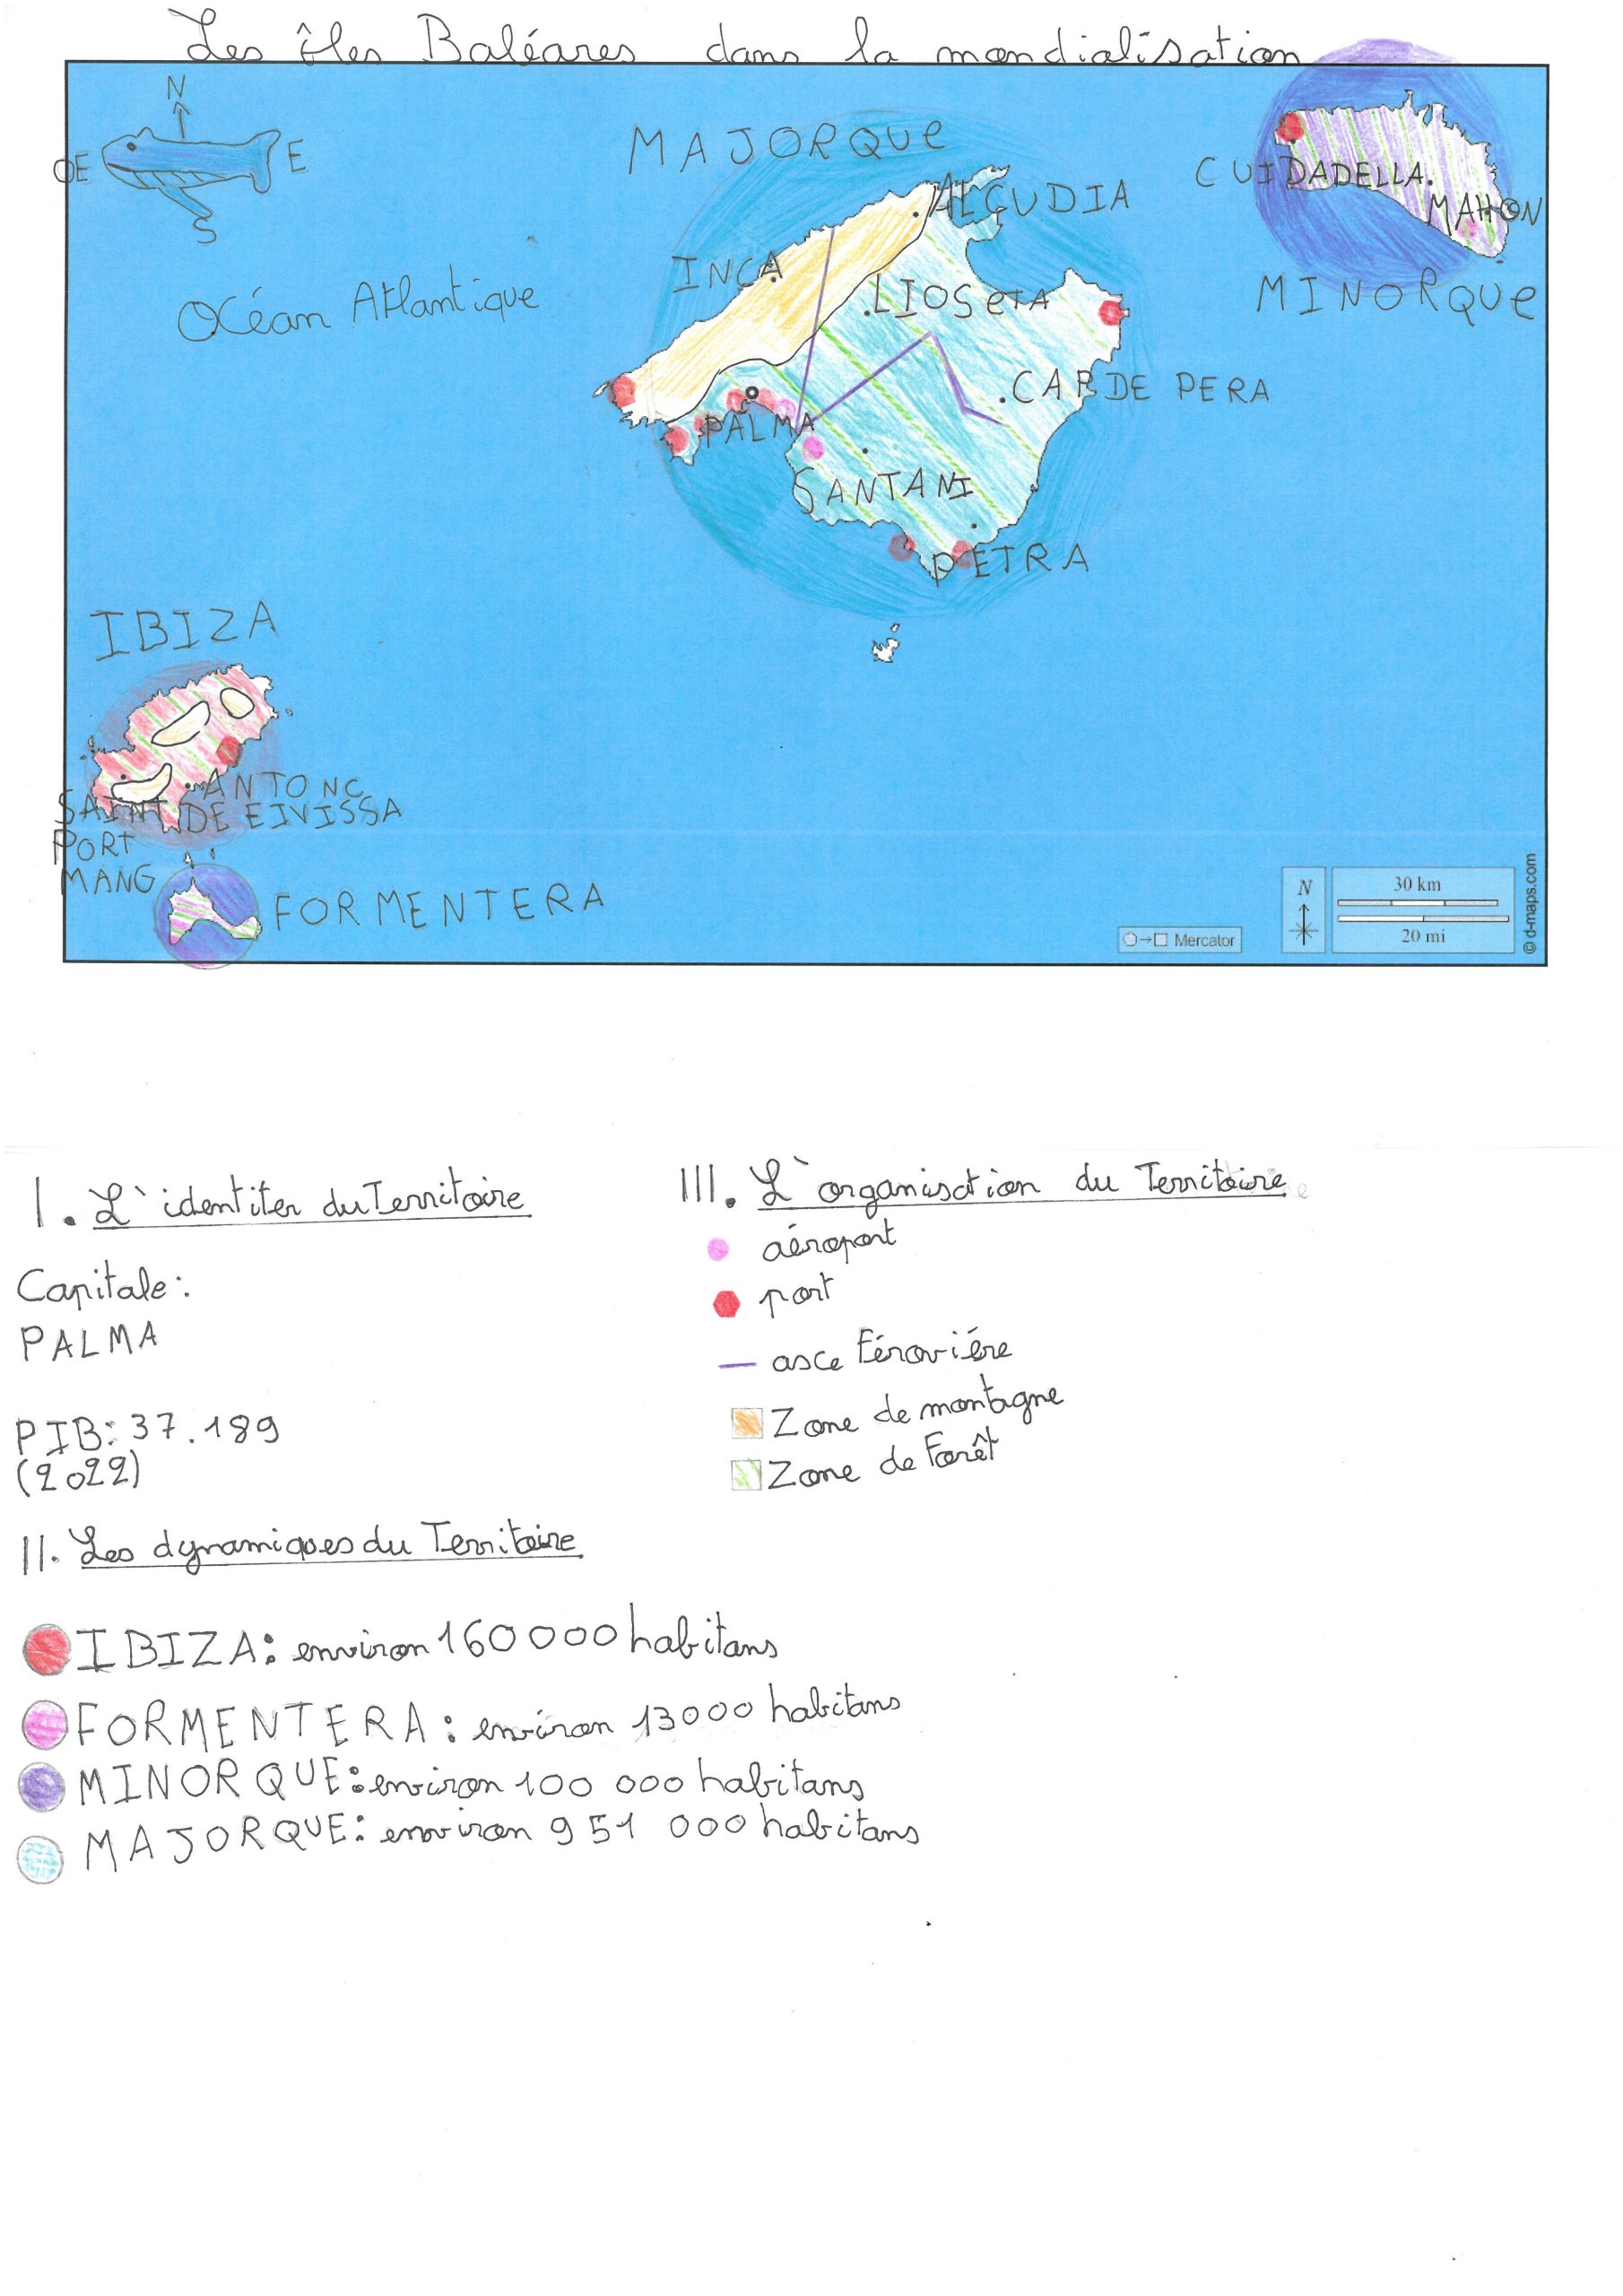 Les îles Baléares dans la mondialisation
N
OE
E
S
Océan Atlantique
MAJORQUe
ALCUDIA
INCA
LIOSeTA
CAP DE PERA
PALMA
SANTANI
PETRA
CUIDADELLA
MAHON
MINORQUe
IBIZA
ANTONC
SAINT DE EIVISSA
PORT
MANG
FORMENTERA
Mercator
N
30 km
20 mi
© d-maps.com
I. L'identiter du Territoire
Capitale:
PALMA
PIB: 37.189
(2022)
II. Les dynamiques du Territoire
IBIZA: environ 160000 habitans
FORMENTERA: environ 13000 habitans
MINORQUE: environ 100 000 habitans
MAJORQUE: environ 951 000 habitans
III. L'organisation du Territoire
aéroport
port
asce Féroviére
Zone de montagne
Zone de Forêt